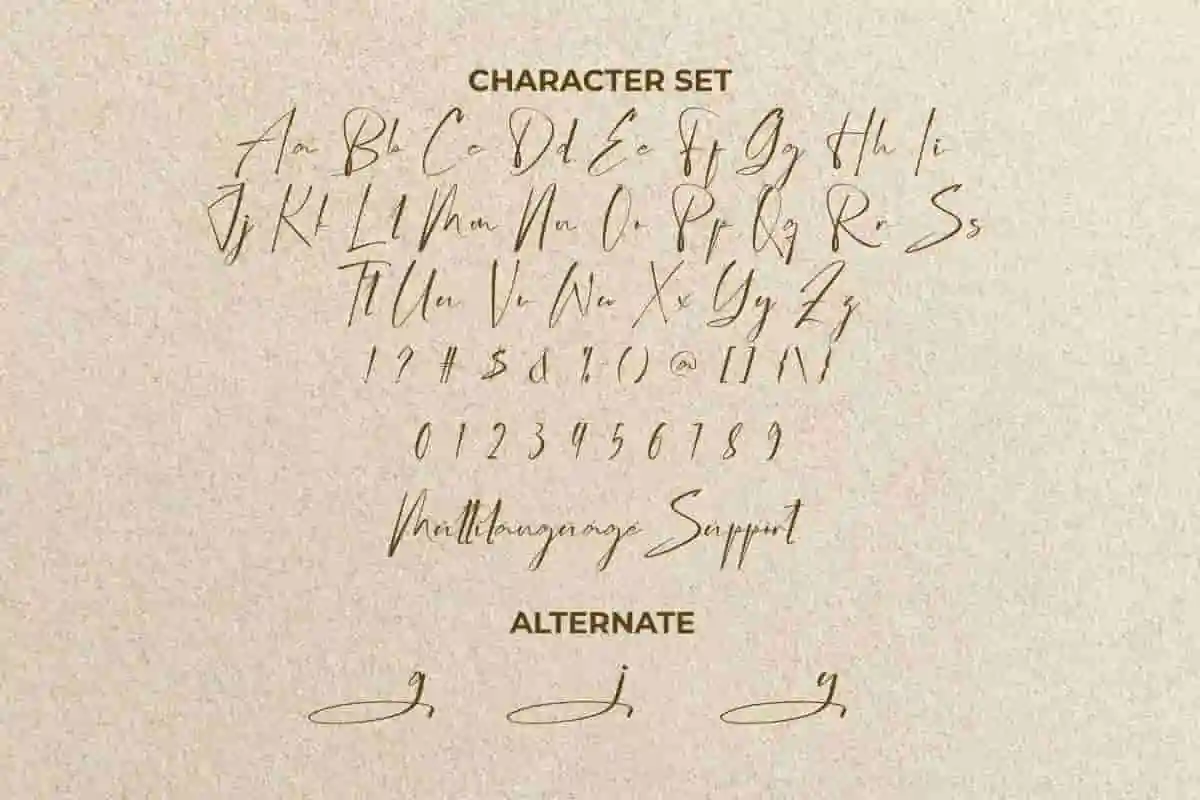 CHARACTER SET
Aa Bb Cc Dd Ee Ff Gg Hh Ii
Jj Kk Ll Mm Nn Oo Pp Qq Rr Ss
Tt Uu Vv Ww Xx Yy Zz
! ? # $ & % ( ) @ [ ] { \ }
0 1 2 3 4 5 6 7 8 9
Multilanguage Support
ALTERNATE
g j y